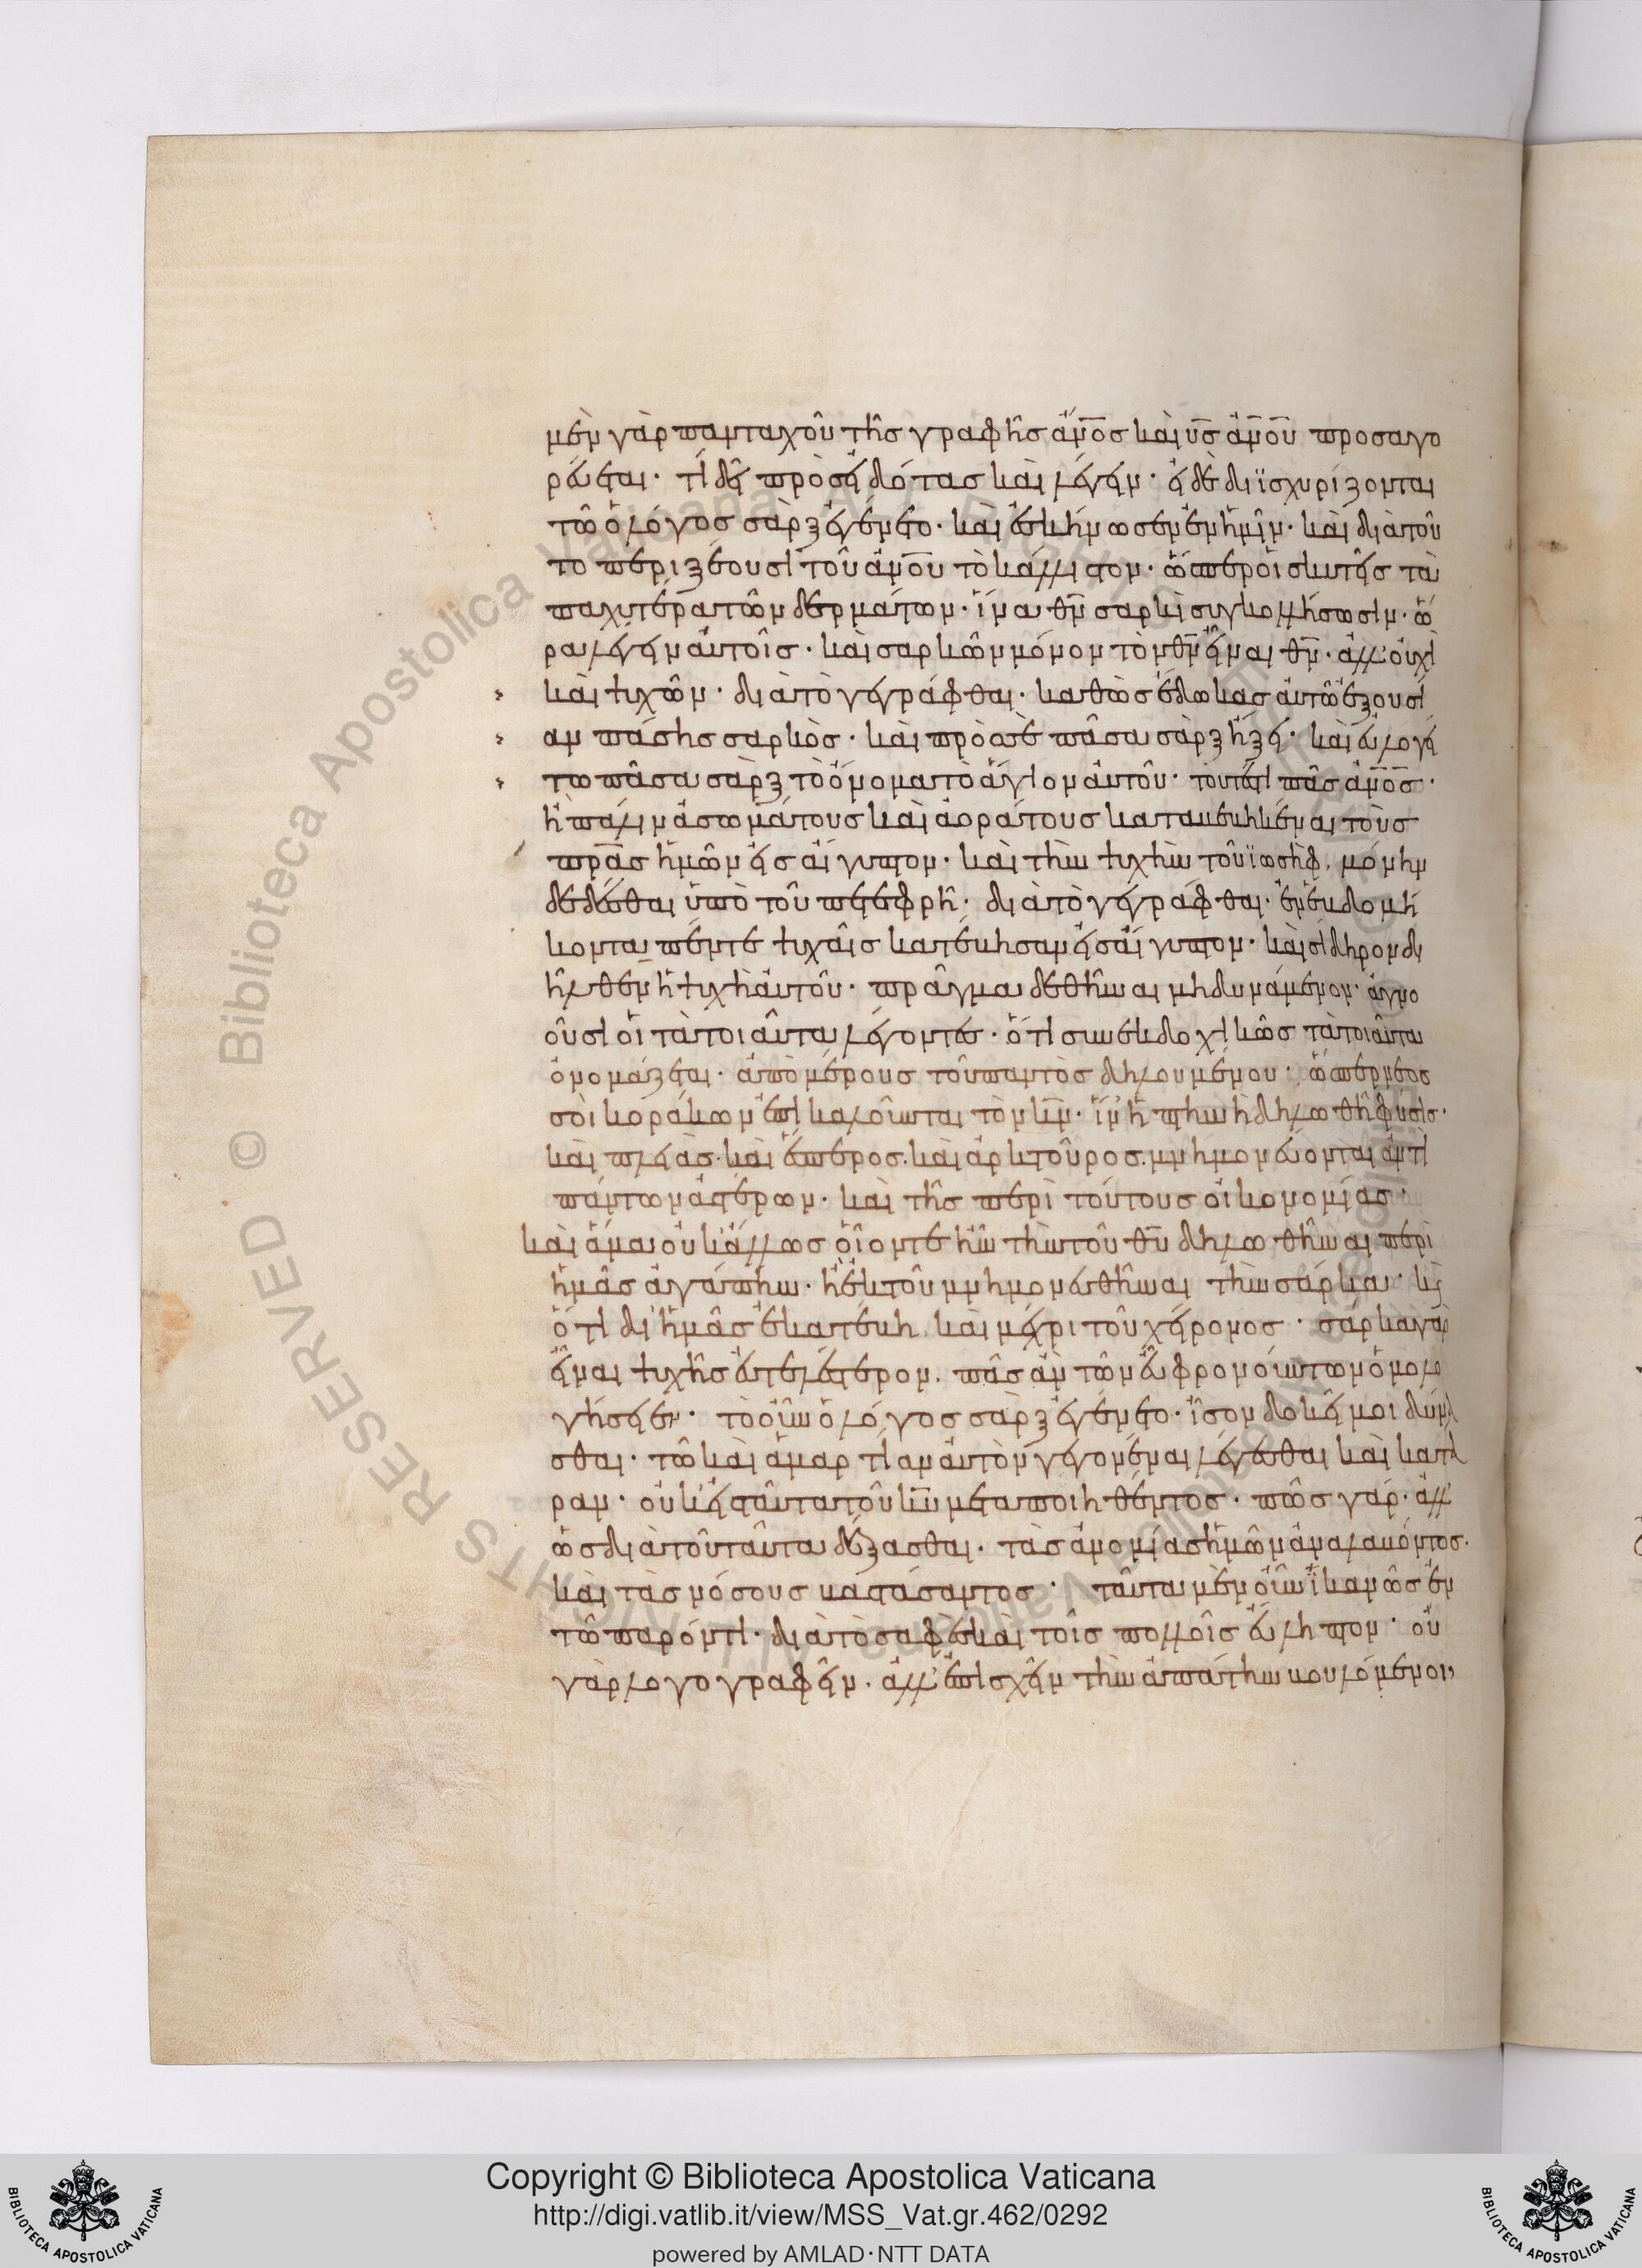 μὲν γὰρ πανταχοῦ τῆς γραφῆς ἄν̅ο̅ς καὶ υ̅ς̅ ἀν̅ο̅υ̅ προσαγο
ρεύεται· τί δεῖ πρὸς εἰδότας καὶ λέγειν· εἰ δὲ διϊσχυρίζονται
τῶ ὁ λόγος σὰρξ ἐγένετο· καὶ ἐσκήνωσεν ἐν ἡμῖν· καὶ διατοῦ
το περιξέουσι τοῦ ἀν̅ο̅υ̅ τὸ κάλλιστον· ὥσπερ οἱ σκυτεῖς τὰ
παχύτερα τῶν δερμάτων· ἵνα θ̅ν̅ σαρκὶ συγκολλήσωσιν· ὥ
ρα λέγειν αὐτοῖς· καὶ σαρκῶν μόνον τὸν θ̅ν̅ εἶναι θ̅ν̅· ἀλλ' οὐχὶ
καὶ ψυχῶν· διατὸ γεγράφθαι· καθὼς ἔδωκας αὐτῶ ἐξουσί
αν πάσης σαρκὸς· καὶ πρὸς σὲ πᾶσα σὰρξ ἥξει· καὶ εὐλογεί
τω πᾶσα σὰρξ τὸ ὄνομα τὸ ἅγιον αὐτοῦ· τουτέστι πᾶς ἄν̅ο̅ς̅·
ἢ πάλιν ἀσωμάτους καὶ ἀοράτους καταβεβηκέναι τοὺς
π̅ρ̅α̅ς ἡμῶν εἰς αἴγυπτον· καὶ τὴν ψυχὴν τοῦ ϊωσὴφ. μόνην
δεδέσθαι ὑπὸ τοῦ πετεφρῆ· διατὸ γεγράφθαι· ἐν ἑβδομή
κοντα πέντε ψυχαῖς κατέβησαν εἰς αἴγυπτον· καὶ σίδηρον δι
ῆλθεν ἡ ψυχὴ αὐτοῦ· πρᾶγμα δεθῆναι μὴ δυνάμενον· ἀγνο
οῦσι οἱ τὰ τοιαῦτα λέγοντες· ὅτι συνεκδοχικῶς τὰ τοιαῦτα
ὀνομάζεται· ἀπὸ μέρους τοῦ παντὸς δηλουμένου· ὥσπερ νεοσ
σοὶ κοράκων ἐπικαλοῦνται τὸν κ̅ν̅· ἵν' ἡ πτηνὴ δηλωθῆ φύσις·
καὶ πλειὰς· καὶ ἕσπερος· καὶ ἀρκτοῦρος· μνημονεύονται ἀντὶ
πάντων ἀστέρων· καὶ τῆς περὶ τούτους οἰκονομίας·
καὶ ἅμα οὐκ ἄλλως οἷόν τε ἦν τὴν τοῦ θ̅υ̅ δηλωθῆναι περὶ
ἡμᾶς ἀγάπην· ἢ ἐκ τοῦ μνημονευθῆναι τὴν σάρκα· κ̣
ὅτι δι' ἡμᾶς ἐκατέβη καὶ μέχρι τοῦ χείρονος· σάρκα γὰρ
εἶναι ψυχῆς εὐτελέστερον. πᾶς ἂν τῶν εὖ φρονούντων ὁμολο
γήσειεν· τὸ οὖν ὁ λόγος σὰρξ ἐγένετο· ἴσον δοκεῖ μοι δύνα
σθαι· τῶ καὶ ἁμαρτίαν αὐτὸν γεγονέναι λέγεσθαι καὶ κατά
ραν· οὐκ εἰς ταῦτα τοῦ κ̅υ̅ μεταποιηθέντος· πῶς γάρ· ἀλλ'
ὡς διατοῦ ταῦτα δέξασθαι· τὰς ἀνομίας ἡμῶν ἀναλαβόντος·
καὶ τὰς νόσους βαστάσαντος· ταῦτα μὲν οὖν ἱκανῶς ἐν
τῶ παρόντι· διατὸ σαφὲς καὶ τοῖς πολλοῖς εὔληπτον· οὐ
γὰρ λογογραφεῖν. ἀλλ' ἐπισχεῖν τὴν ἀπάτην βουλόμενοι,
Copyright © Biblioteca Apostolica Vaticana
http://digi.vatlib.it/view/MSS_Vat.gr.462/0292
powered by AMLAD·NTT DATA
BIBLIOTECA APOSTOLICA VATICANA
BIBLIOTECA APOSTOLICA VATICANA